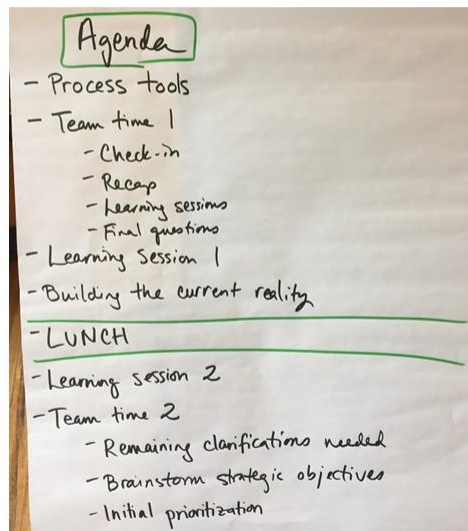 Agenda
- Process tools
- Team time 1
- Check-in
- Recap
- Learning sessions
- Final questions
- Learning Session 1
- Building the current reality
- LUNCH
- Learning session 2
- Team time 2
- Remaining clarifications needed
- Brainstorm strategic objectives
- Initial prioritization